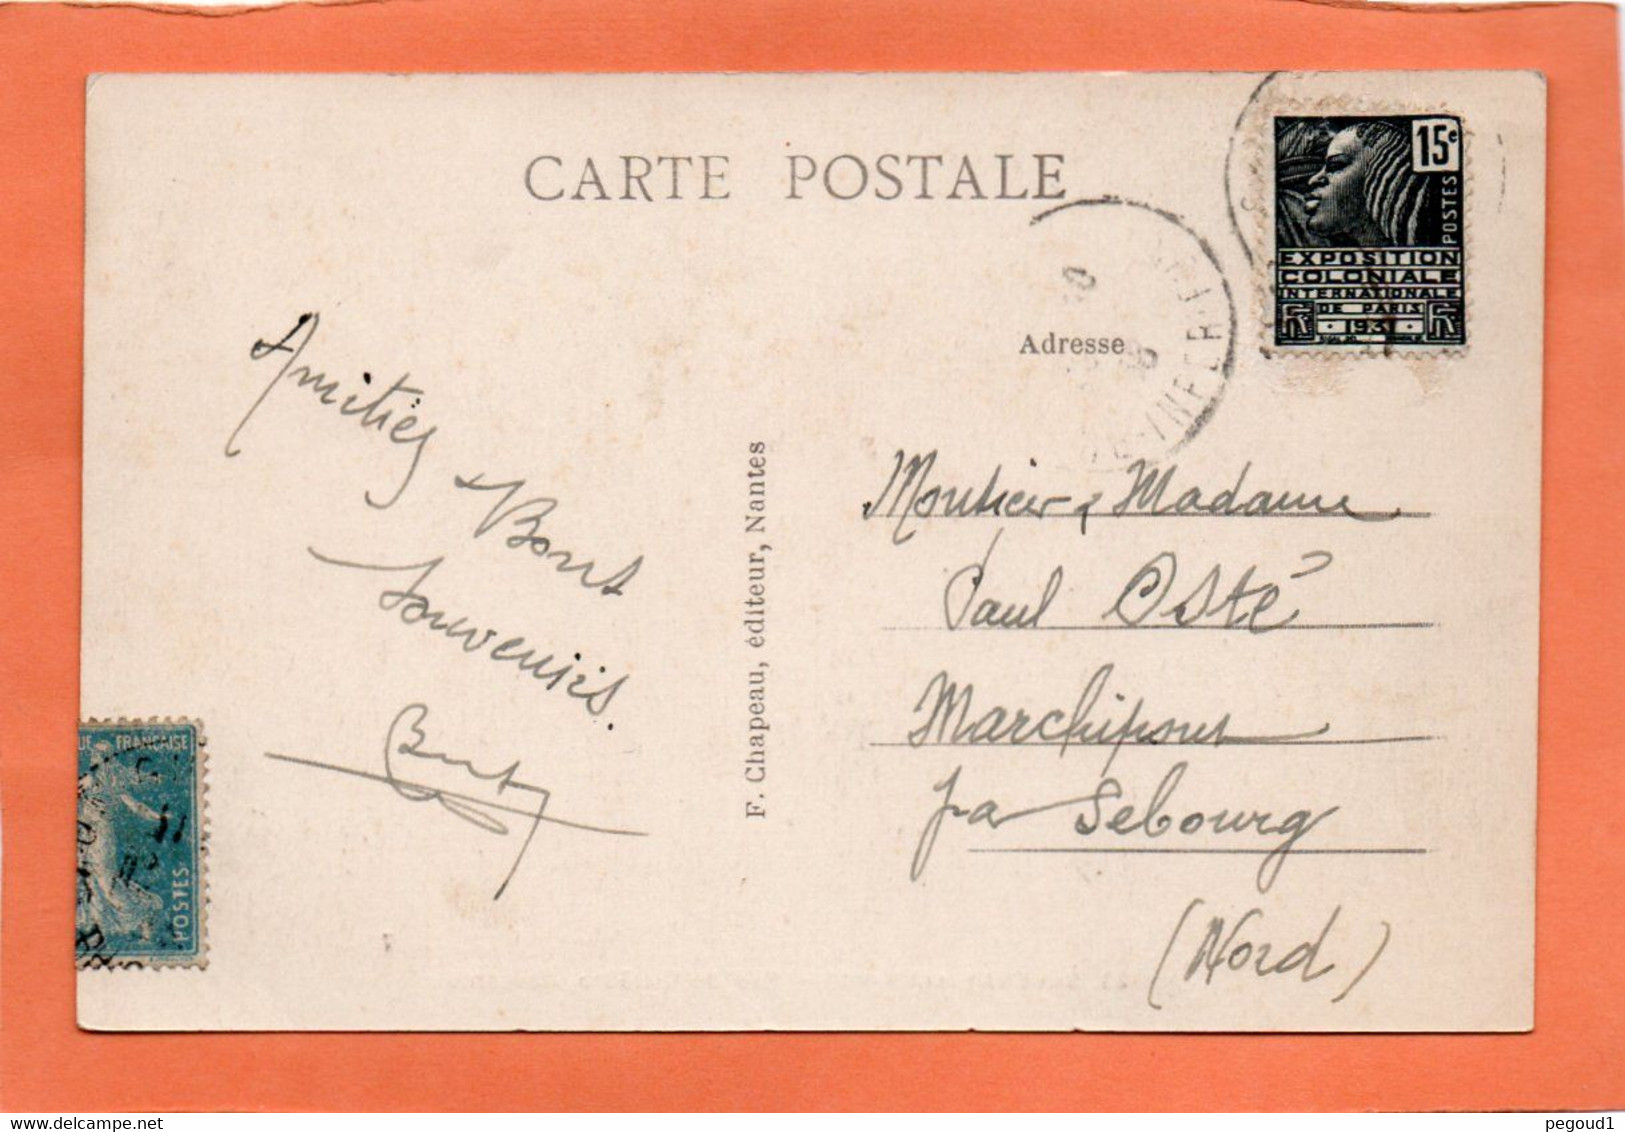 CARTE POSTALE
15c
POSTES
EXPOSITION
COLONIALE
INTERNATIONALE
DE PARIS
1931
Adresse
INFER
Amitiés
Bons
Souvenirs.
F. Chapeau, éditeur, Nantes
Monsieur & Madame
Paul Osté
Marchipont
par Sebourg
(Nord)
UE FRANÇAISE
POSTES
delcampe.net
pegoud1